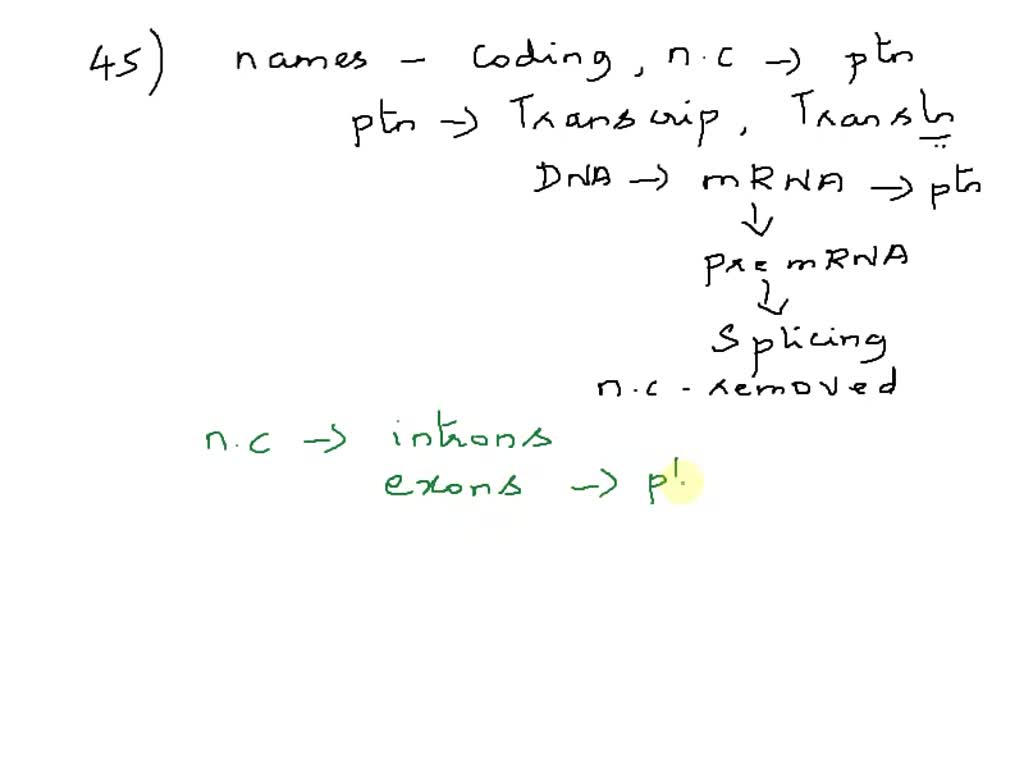 45) names - coding, n.c → ptn
ptn → Transcrip, Transln
DNA → mRNA → ptn
↓
pre mRNA
↓
Splicing
n.c - removed
n.c → introns
exons → pt